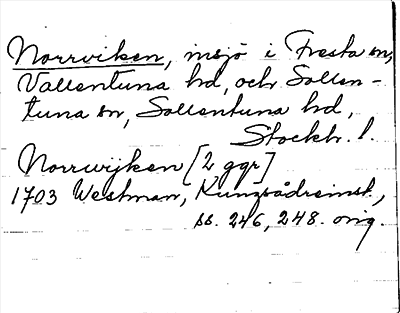 Norrviken, insjö i Fresta sn,
Vallentuna hd, och Sollen-
tuna sn, Sollentuna hd,
Stockh. l.
Norrwijken [2 ggr]
1703 Westman, Kungsådreinst.,
ss. 246, 248. orig.